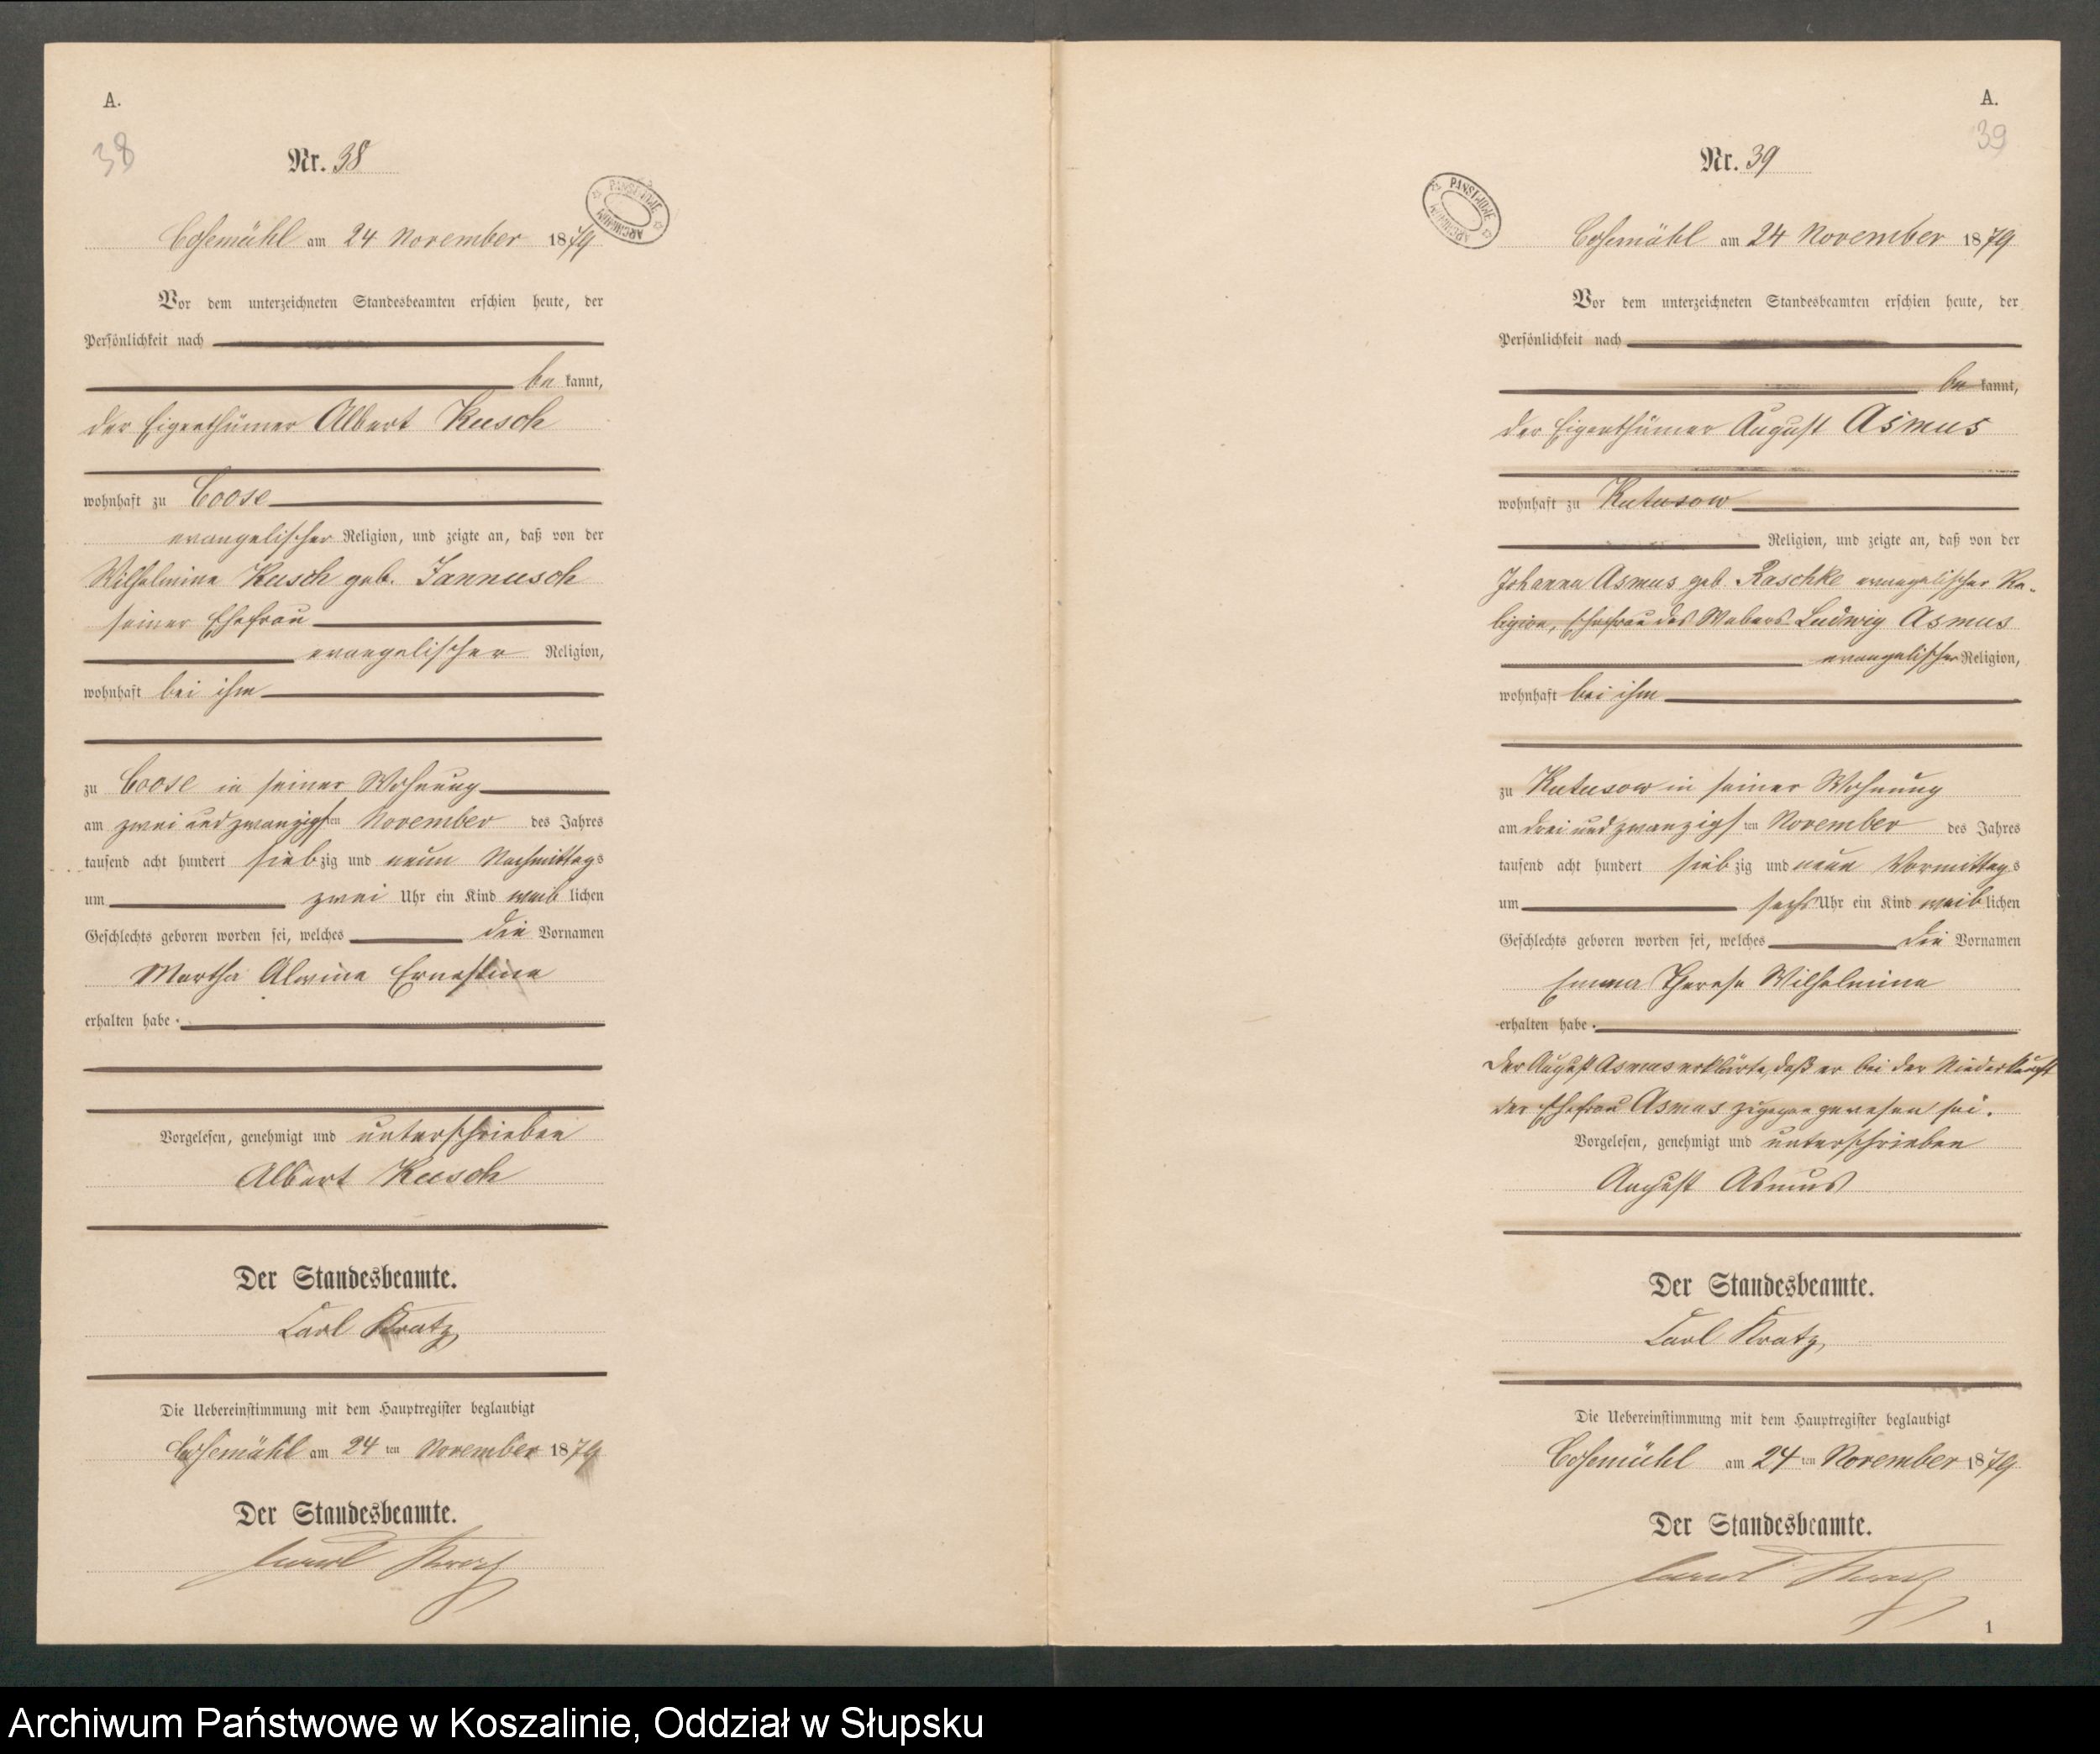 A.
38
Nr. 38
PAŃSTWOWE ARCHIWUM
Cosemühl am 24 November 1879
Vor dem unterzeichneten Standesbeamten erschien heute, der
Persönlichkeit nach
be kannt,
der Eigenthümer Albert Kusch
wohnhaft zu Coose
evangelischer Religion, und zeigte an, daß von der
Wilhelmine Kusch geb. Jannusch
seiner Ehefrau
evangelischer Religion,
wohnhaft bei ihm
zu Coose in seiner Wohnung
am zwei und zwanzigsten November des Jahres
tausend acht hundert siebzig und neun Nachmittags
um zwei Uhr ein Kind weiblichen
Geschlechts geboren worden sei, welches die Vornamen
Martha Alwine Ernestine
erhalten habe.
Vorgelesen, genehmigt und unterschrieben
Albert Kusch
Der Standesbeamte.
Carl Kratz
Die Uebereinstimmung mit dem Hauptregister beglaubigt
Cosemühl am 24 ten November 1879
Der Standesbeamte.
A.
39
Nr. 39
PAŃSTWOWE ARCHIWUM
Cosemühl am 24 November 1879
Vor dem unterzeichneten Standesbeamten erschien heute, der
Persönlichkeit nach
be kannt,
der Eigenthümer August Asmus
wohnhaft zu Kutusow
Religion, und zeigte an, daß von der
Johanna Asmus geb. Raschke evangelischer Re-
ligion, Ehefrau des Webers Ludwig Asmus
evangelischer Religion,
wohnhaft bei ihm
zu Kutusow in seiner Wohnung
am drei und zwanzigsten November des Jahres
tausend acht hundert siebzig und neun Vormittags
um sechs Uhr ein Kind weiblichen
Geschlechts geboren worden sei, welches die Vornamen
Emma Therese Wilhelmine
erhalten habe.
Der August Asmus erklärte, daß er bei der Niederkunft
der Ehefrau Asmus zugegen gewesen sei.
Vorgelesen, genehmigt und unterschrieben
August Asmus
Der Standesbeamte.
Carl Kratz
Die Uebereinstimmung mit dem Hauptregister beglaubigt
Cosemühl am 24 ten November 1879
Der Standesbeamte.
1
Archiwum Państwowe w Koszalinie, Oddział w Słupsku